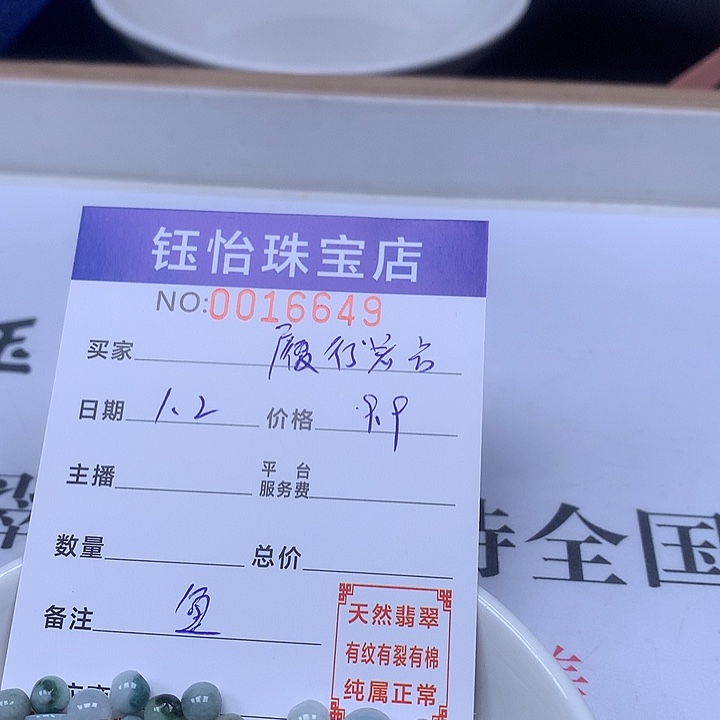 钰怡珠宝店
NO:0016649
买家 履行若言
日期 1.2 价格
主播 平台服务费
数量 总价
备注 鱼
天然翡翠
有纹有裂有棉
纯属正常
特全国